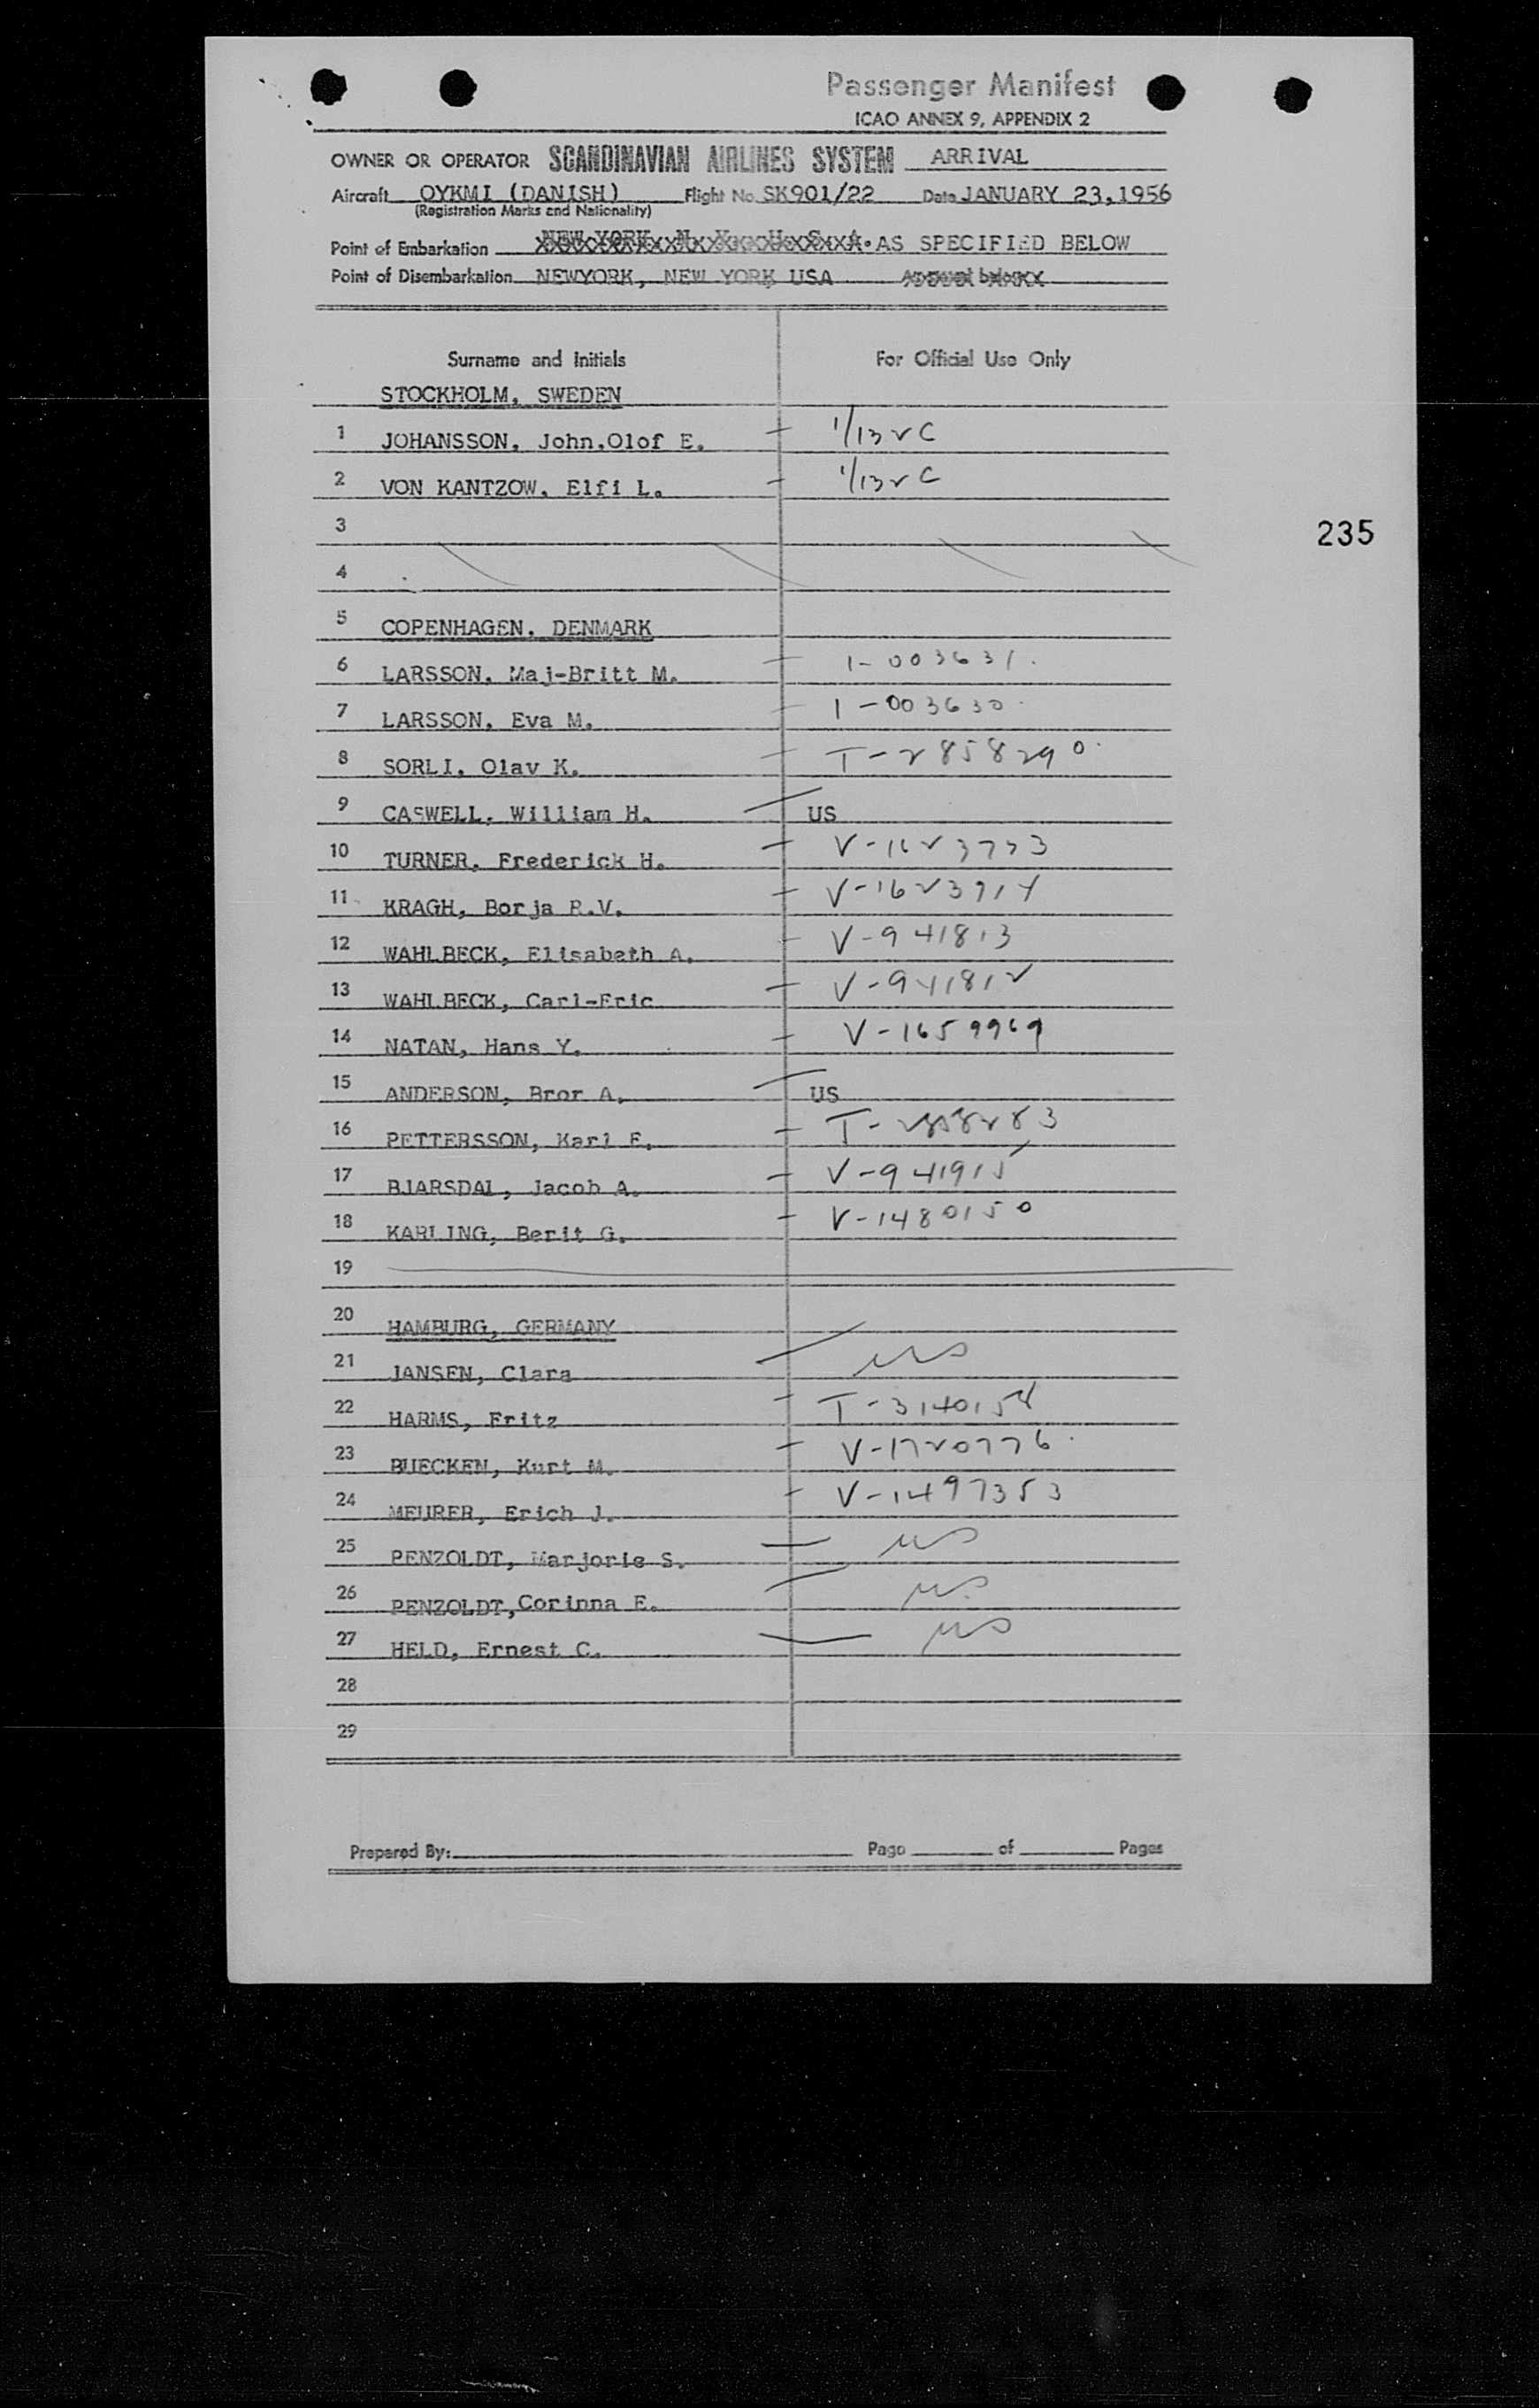 Passenger Manifest
ICAO ANNEX 9, APPENDIX 2
OWNER OR OPERATOR SCANDINAVIAN AIRLINES SYSTEM ARRIVAL
Aircraft OYKMI (DANISH) Flight No. SK901/22 Date JANUARY 23,1956
(Registration Marks and Nationality)
Point of Embarkation NEW YORK, N. Y. U. S. A. AS SPECIFIED BELOW
Point of Disembarkation NEWYORK, NEW YORK USA
Surname and Initials For Official Use Only
STOCKHOLM, SWEDEN
1 JOHANSSON, John.Olof E. 1/132C
2 VON KANTZOW, Elfi L. 1/132C
3
235
4
5 COPENHAGEN, DENMARK
6 LARSSON, Maj-Britt M. 1-003631.
7 LARSSON, Eva M. 1-003630.
8 SORLI, Olav K. T-2858290.
9 CASWELL, William H. US
10 TURNER, Frederick H. V-1623733
11 KRAGH, Borja R.V. V-1623914
12 WAHLBECK, Elisabeth A. V-941813
13 WAHLBECK, Carl-Eric V-941812
14 NATAN, Hans Y. V-1659969
15 ANDERSON, Bror A. US
16 PETTERSSON, Karl E.
17 BJARSDAL, Jacob A. V-941915
18 KARLING, Berit G. V-1480150
19
20 HAMBURG, GERMANY
21 JANSEN, Clara US
22 HARMS, Fritz T-3140154
23 BUECKEN, Kurt M. V-1720776.
24 MEURER, Erich J. V-1497353
25 PENZOLDT, Marjorie S. US
26 PENZOLDT,Corinna E. US
27 HELD, Ernest C. US
28
29
Prepared By: Page of Pages